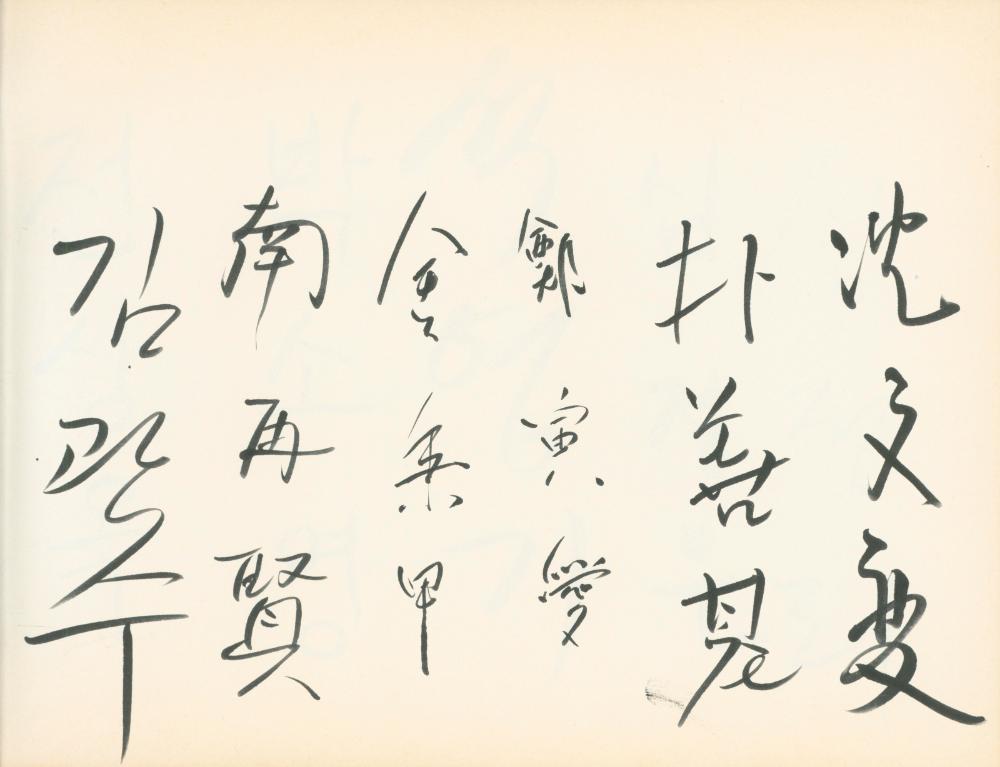 沈文燮
朴善基
鄭寅愛
金秉甲
南再賢
김관수